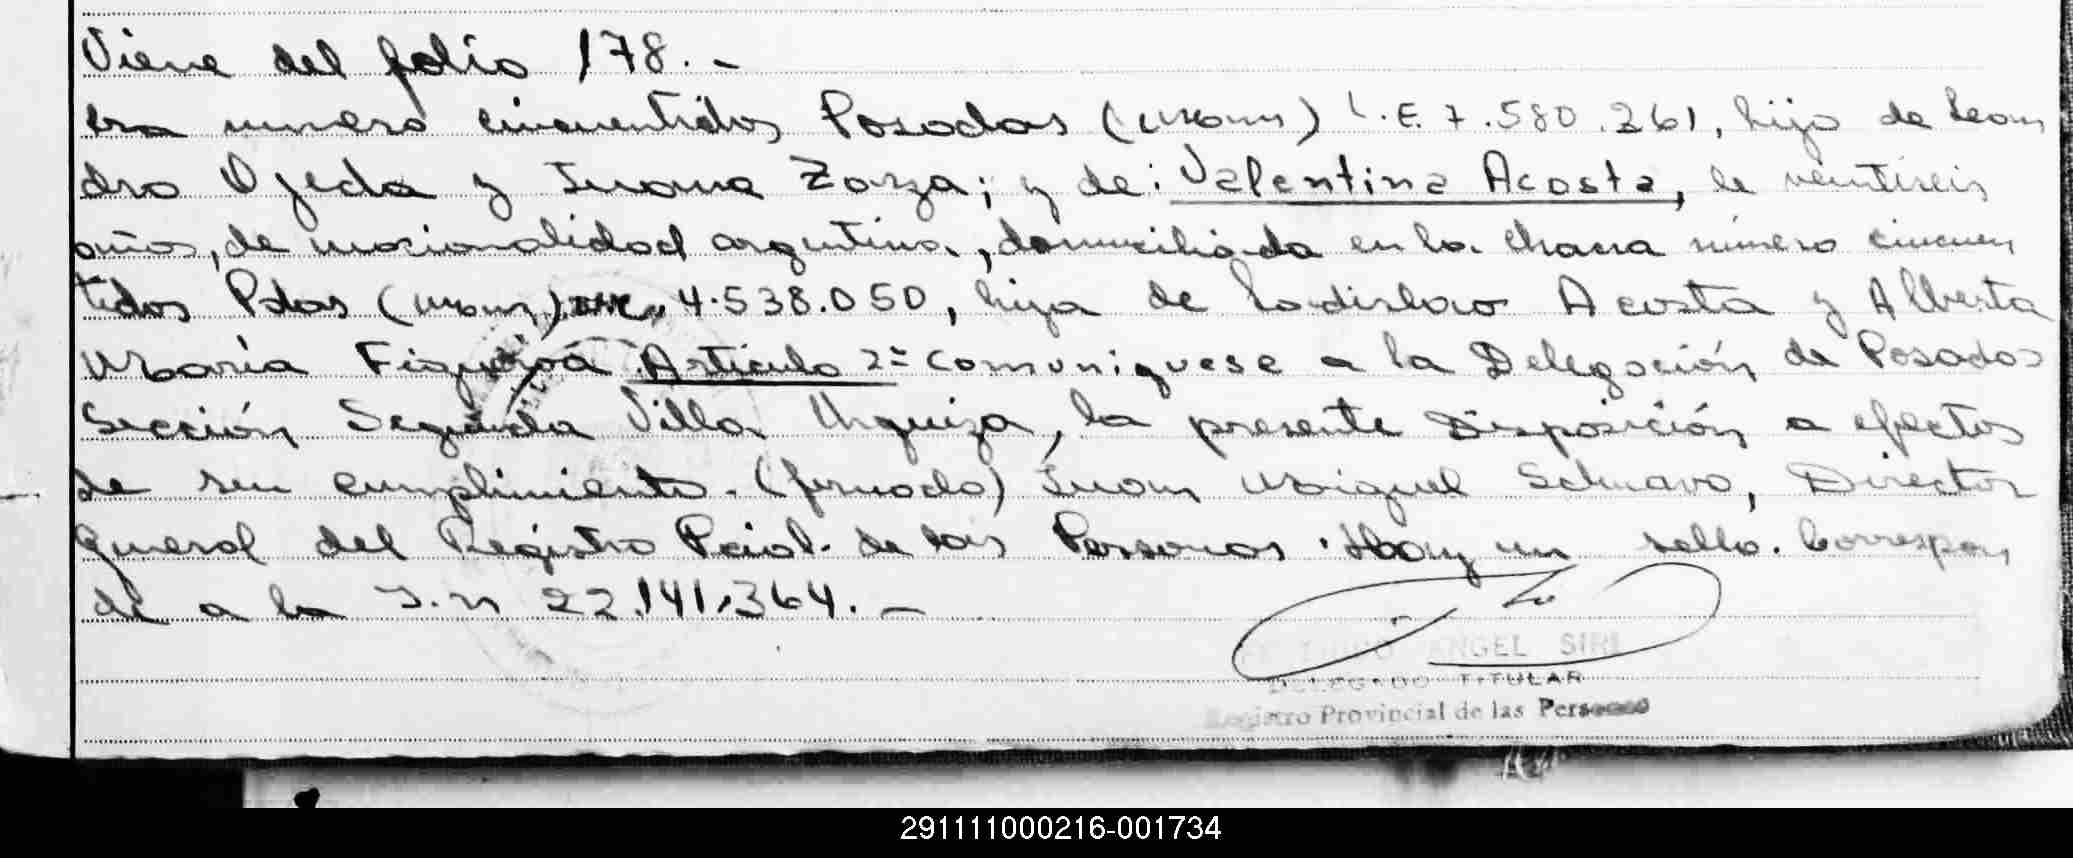 Viene del folio 178.-
cra numero cincuentidos Posadas (Mnes) L.E. 7.580.261, hijo de Lean
dro Ojeda y Juana Zarza; y de: Valentina Acosta, de veintiseis
años, de nacionalidad argentina, domiciliada en la chacra número cincuen
tidos Pdas (Mnes) 4.538.050, hija de Ladislao Acosta y Alberta
María Figueroa Artículo 2º Comuniquese a la Delegación de Posadas
Sección Segunda Villa Urquiza, la presente Disposición a efectos
de su cumplimiento. (firmado) Juan Miguel, Director
General del Registro Pcial. de las Personas. Hay un sello. Correspon
de a la I.n 22.141.364.-
ANGEL SIRI
DELEGADO TITULAR
Registro Provincial de las Personas
291111000216-001734